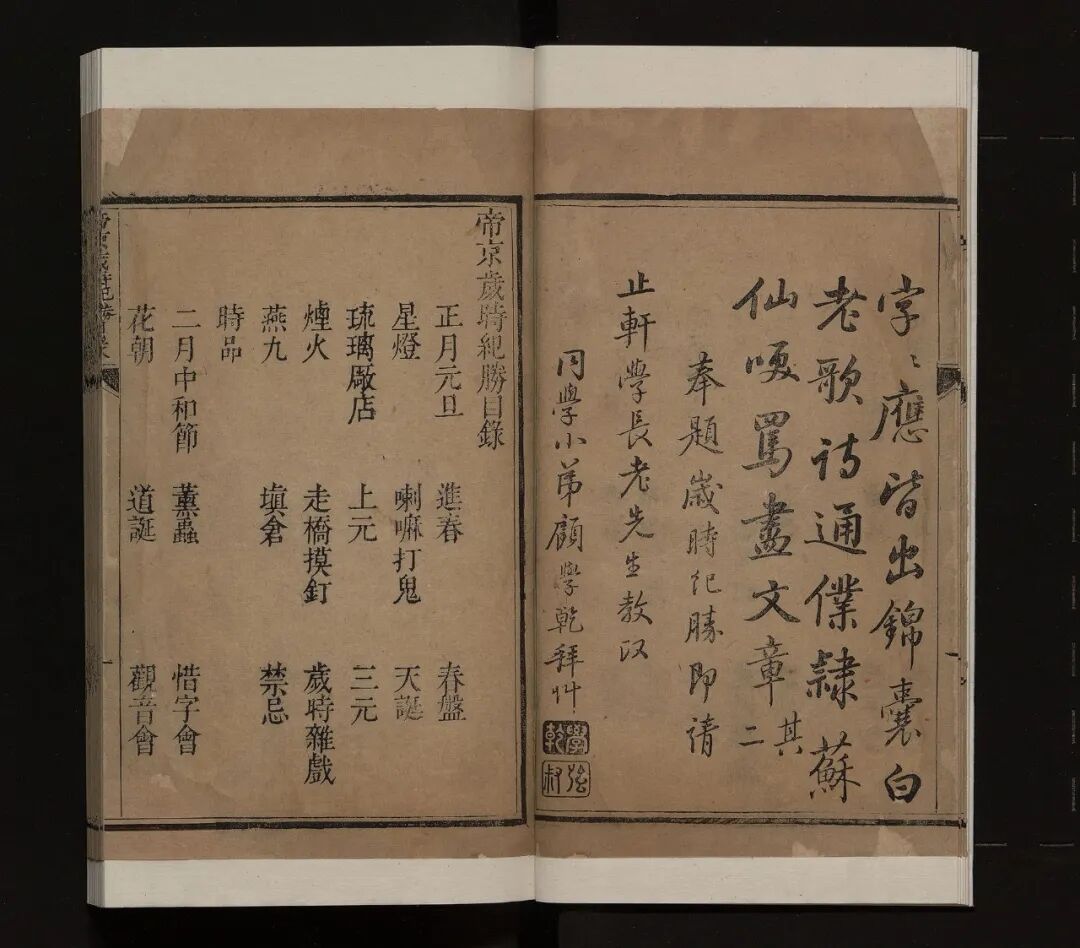 字〻應皆出錦囊白
老歌詩通僕隸蘇
仙嘆罵盡文章其二
奉題歲時紀勝即請
止軒學長老先生教政
同學小弟顧學乾拜艸
學乾
弦叔
帝京歲時紀勝目錄
正月元旦 進春 春盤
星燈 喇嘛打鬼 天誕
琉璃厰店 上元 三元
煙火 走橋摸釘 歲時雜戲
燕九 塡倉 禁忌
時品
二月中和節 薰蟲 惜字會
花朝 道誕 觀音會
帝京歲時紀勝目錄